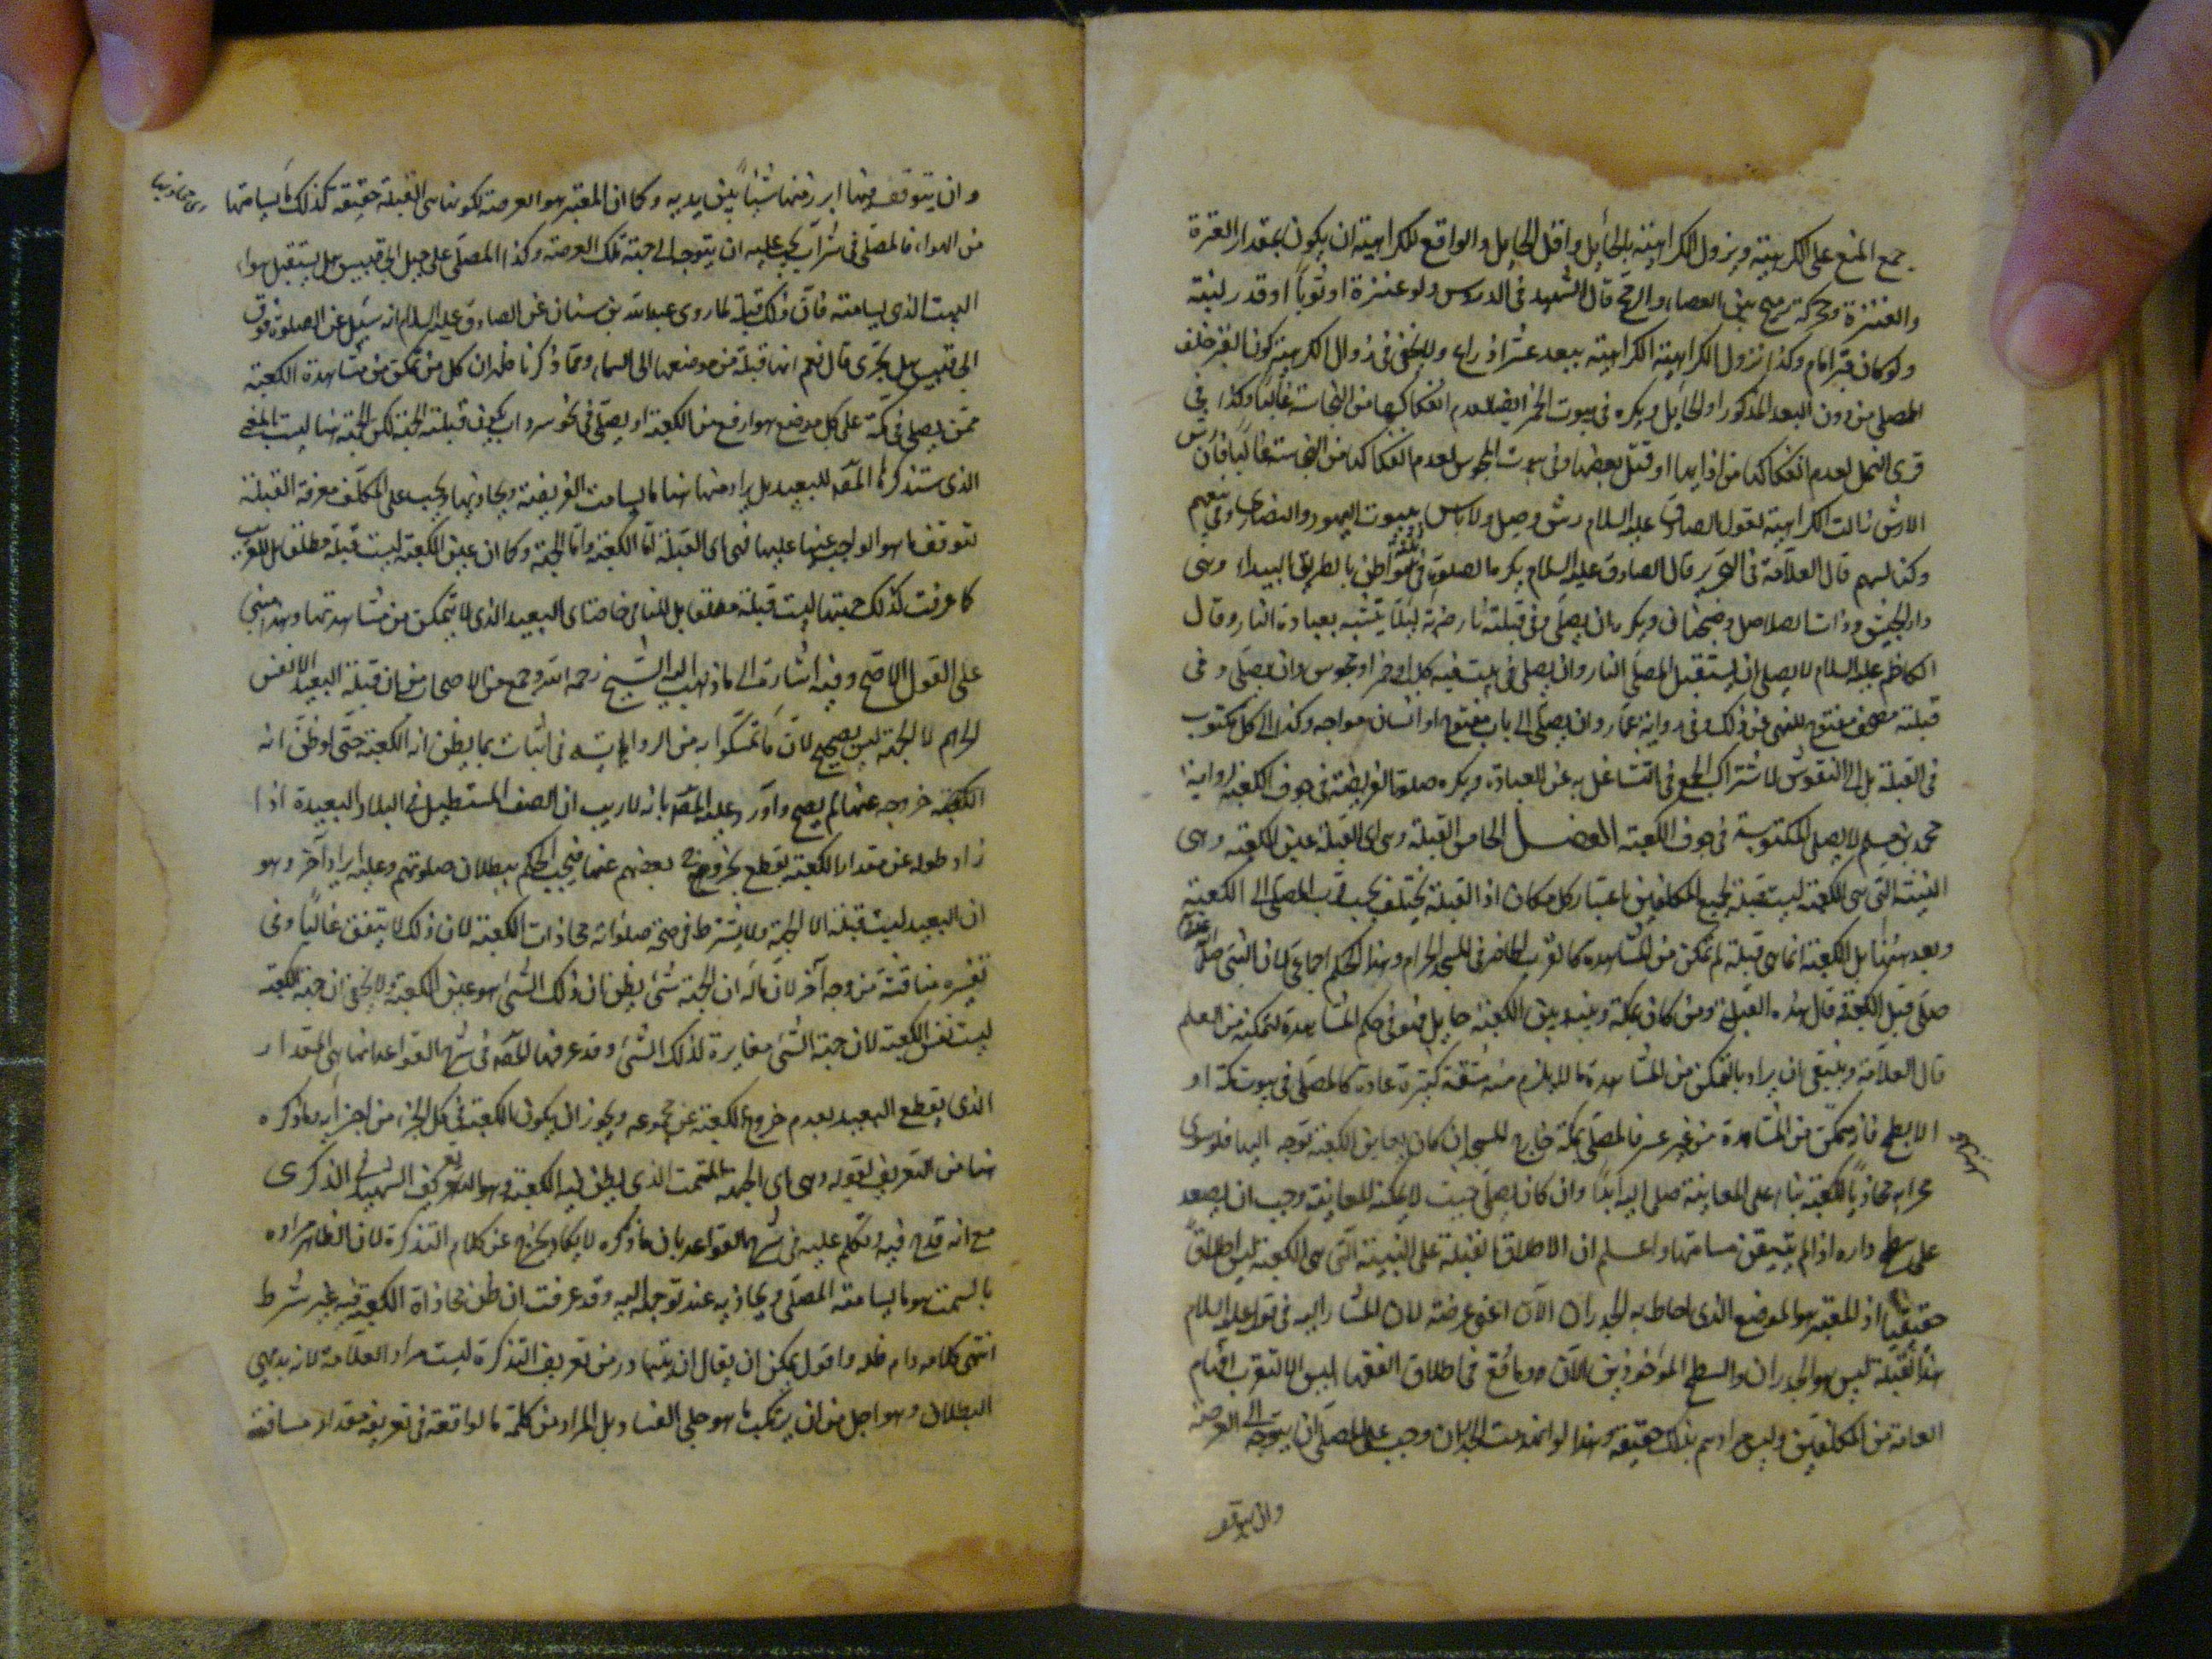 جمع المنع على الكراهية ويزول الكراهية بالحائل واقل الحايل والواقع للكراهية ان يكون بمقدار العنزة
والعنزة محركة رميح بين العصا والرمح قال الشهيد في الدروس ولو عنزة او ثوباً او قدر لبنة
ولو كان قبر امام وكذا تزول الكراهية الكراهية ببعد عشر اذراع ولا يخفى في زوال الكراهية كون القبر خلف
المصلي من دون البعد المذكور او الحائل ويكره في بيوت الخمر ايضا لعدم انفكاكها من النجاسة غالباً وكذا في
قرى النمل لعدم انفكاكه من اذايها او قتل بعضها وفي بيوت المجوس لعدم انفكاكه من النجاسة غالباً فان رش
الارش زالت الكراهية لقول الصادق عليه السلام رش وصل ولا باس ببيوت اليهود والنصارى وبيعهم
وكنايسهم قال العلامة في التحرير قال الصادق عليه السلام يكره الصلوة في ثلثة مواطن بالطريق البيداء وهي
ذات الجيش وذات الصلاصل وضجنان ويكره ان يصلي وفي قبلته نار مضرمة لئلا يتشبه بعبادة النار وقال
الكاظم عليه السلام لا يصلح ان يستقبل المصلي النار وان يصلي في بيت فيه كلب او خمر او مجوسي وان يصلي وفي
قبلته مصحف مفتوح للنهي عن ذلك في رواية عمار وان يصلي الى باب مفتوح او انسان مواجه وكذا الى كل مكتوب
في القبلة بل الى النقوش لاشتراك الجميع في التشاغل به عن العبادة ويكره صلوة الفريضة في جوف الكعبة لرواية
محمد بن مسلم لا يصلي المكتوبة في جوف الكعبة الفصل الخامس القبلة وهي اي القبلة عين الكعبة وهي
البنية التي هي الكعبة ليست قبلة لجميع المكلفين باعتبار كل مكان اذ القبلة يختلف بحسب قرب المصلي الى الكعبة
وبعده عنها بل الكعبة انما هي قبلة لم تمكن من المشاهدة كالقرب الحاضر في المسجد الحرام وهذا الحكم اجماعي لان النبي
صلى قبل الكعبة قال هذه القبلة ومن كان بمكة وبينه وبين الكعبة حايل فهو في حكم المشاهدة لتمكنه من العلم
قال العلامة وينبغي ان يراد بالتمكن من المشاهدة ما لا يلزم منه مشقة كثيرة عادة كالمصلي في بيوت مكة او
الابطح فانه متمكن من المشاهدة من غير عسر فالمصلي بمكة خارج المسجد ان كان يعاين الكعبة توجه اليها فلو سوى
محرابه محاذياً للكعبة بناء على المعاينة صلى اليه ابداً وان كان يصلي حيث لا يمكنه المعاينة وجب ان يصعد
على سطح داره اذا لم يتيقن مسامتها واعلم ان الاطلاق القبلة على البنية التي هي الكعبة ليس اطلاقً
حقيقياً اذ المعتبر هو الموضع الذي احاط به الجدران الآن اعني عرصة لان المشار اليه في قوله عليه السلام
هذه القبلة ليس هو الجدران والسطح الموجودين الآن وما وقع في اطلاق الفقهاء ليس الا لتقرب افهام
العامة من المكلفين وليس مرادهم بذلك حقيقة ولهذا لو انهدمت الجدران وجب على المصلي ان يتوجه الى العرصة
وان يتوقف
وان يتوقف منها ابرز منها شيئاً بين يديه وكما ان المعتبر هو العرصة لكونها هي القبلة حقيقة كذلك ما يسامتها
من الهواء فالمصلي في سرداب يجب عليه ان يتوجه الى جهة تلك العرصة وكذا المصلي على جبل ابي قبيس بل يستقبل هواء
البيت الذي يسامته فان ذلك قبلة لما روى عبدالله بن سنان عن الصادق عليه السلام انه سئل عن الصلوة فوق
ابي قبيس هل يجزي قال نعم انها قبلة من موضعها الى السماء ومما ذكرنا ظهر ان كل من تمكن من مشاهدة الكعبة
ممن يصلي في مكة على كل موضع هو ارفع من الكعبة او يصلي في نحو سرداب يكون قبلته الجهة لكن الجهة هنا ليست بالمعنى
الذي ستذكره المصنف للبعيد بل يراد منها هنا ما يسامت الفريضة ويحاذيها ويجب على المكلف معرفة القبلة
لتوقف ما هو الواجب عليها فهي اي القبلة اما الكعبة واما الجهة وكما ان عين الكعبة ليست قبلة مطلقا بل للقريب
كما عرفت كذلك جهتها ليست قبلة مطلقا بل للنائي خاصة اي البعيد الذي لا يتمكن من مشاهدتها وهذا مبني
على القول الاصح وفيه اشارة الى ما ذهب اليه الشيخ رحمه الله وجمع من الاصحاب من ان قبلة البعيد الا نفس
الحرم لا الجهة ليس بصحيح لان ما تمسكوا به من الروايات في اثبات بما يظن انه الكعبة حتى لو ظن انه
الكعبة خروجه عنها لم يصح واورد عليه المصنف بانه لا ريب ان الصف المستطيل في البلاد البعيدة اذا
زاد طوله عن مقدار الكعبة يقطع بخروج بعضهم عنها فيجب الحكم ببطلان صلوتهم وعليه ايراد آخر وهو
ان البعيد ليست قبلته الا الجهة ولا يشترط في صحة صلواته محاذات الكعبة لان ذلك لا يتفق غالباً وفي
تفسيره مناقشة من وجه آخر لان ماله ان الجهة شئ يظن ان ذلك الشئ هو عين الكعبة ولا يخفى ان جهة الكعبة
ليست نفس الكعبة لان جهة الشئ مغايرة لذلك الشئ وقد عرفها المصنف في شرح القواعد انها هي المقدار
الذي يقطع البعيد بعدم خروج الكعبة عن مجموعه ويجوز ان يكون الكعبة في كل الجزء من اجزايه ما ذكره
هنا من التعريف لقوله وهي اي الجهة السمت الذي يظن فيه الكعبة وهو تعريف الشهيد في الذكرى
مع انه قدح فيه وتكلم عليه في شرح القواعد بان ما ذكره لا يكاد يخرج عن كلام التذكرة لان الظاهر مراده
بالسمت هو ما يسامته المصلي ويحاذيه عند توجهه اليه وقد عرفت ان ظن محاذاة الكعبة فيه غير شرط
انتهى كلامه دام ظله واقول يمكن ان يقال ان يتبادر من تعريف التذكرة ليست مراد العلامة لانه بديهي
البطلان وهو اجل من ان يرتكب ما هو جلي الفساد بل المراد من كلمة ما الواقعة في تعريفه مقدار مسافة